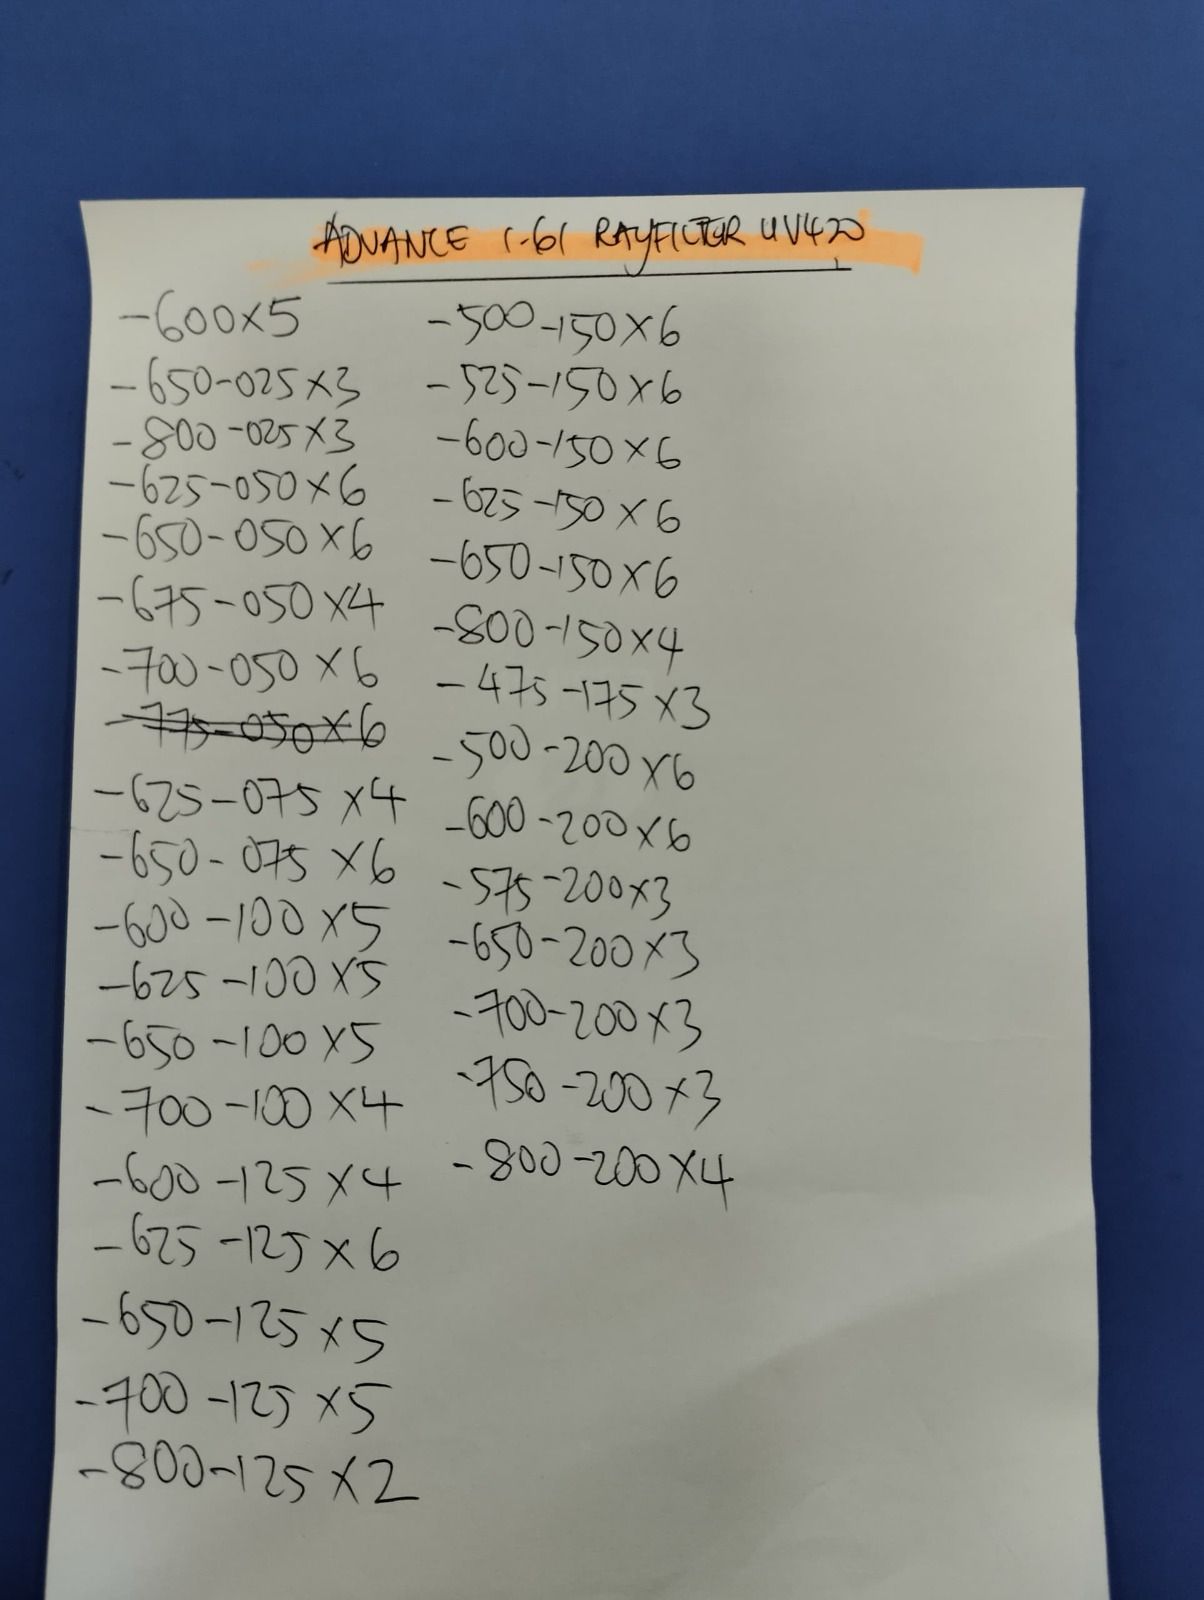 ADVANCE 1.61 RAYFILTER UV420
-600x5
-650-025x3
-800-025x3
-625-050x6
-650-050x6
-675-050x4
-700-050x6
-775-050x6
-625-075x4
-650-075x6
-600-100x5
-625-100x5
-650-100x5
-700-100x4
-600-125x4
-625-125x6
-650-125x5
-700-125x5
-800-125x2
-500-150x6
-525-150x6
-600-150x6
-625-150x6
-650-150x6
-800-150x4
-475-175x3
-500-200x6
-600-200x6
-575-200x3
-650-200x3
-700-200x3
-750-200x3
-800-200x4